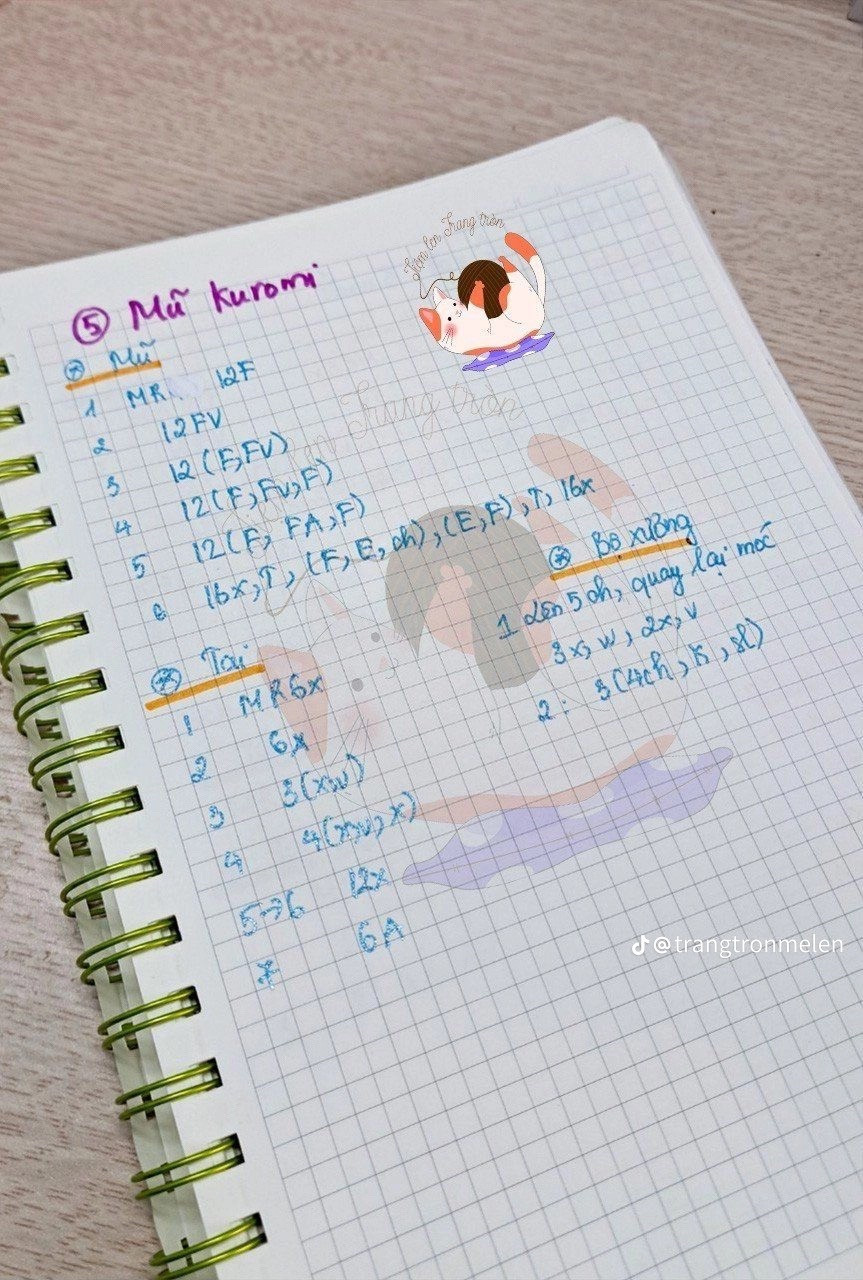 Tiệm len Trang tròn
⑤ Mũ Kuromi
Mũ
1 MR 12F
2 12FV
3 12(F,FV)
4 12(F,FV,F)
5 12(F, FA,F)
6 16x,T, (F,E,ch),(E,F),T,16x
Tai
1 MR6x
2 6x
3 3(xw)
4 4(x,v,x)
5→6 12x
7 6A
Bộ xương
1 Lên 5 ch, quay lại móc
3x, w, 2x, v
2: 3(4ch, k, sl)
Trang tròn
@trangtronmelen